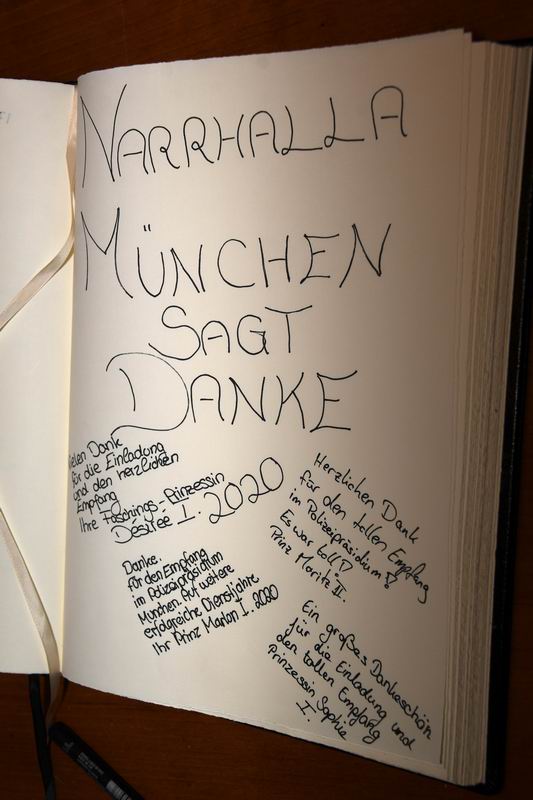 NARRHALLA
MÜNCHEN
SAGT
DANKE
Vielen Dank
für die Einladung
und den herzlichen
Empfang
Ihre Faschings-Prinzessin
Désirée I. 2020
Danke.
für den Empfang
im Polizeipräsidium
München. Auf weitere
erfolgreiche Dienstjahre
Ihr Prinz Marlon I. 2020
Herzlichen Dank
für den tollen Empfang
im Polizeipräsidium!
Es war toll!
Prinz Moritz II.
Ein großes Dankeschön
für die Einladung und
den tollen Empfang
Prinzessin Sophie
I.